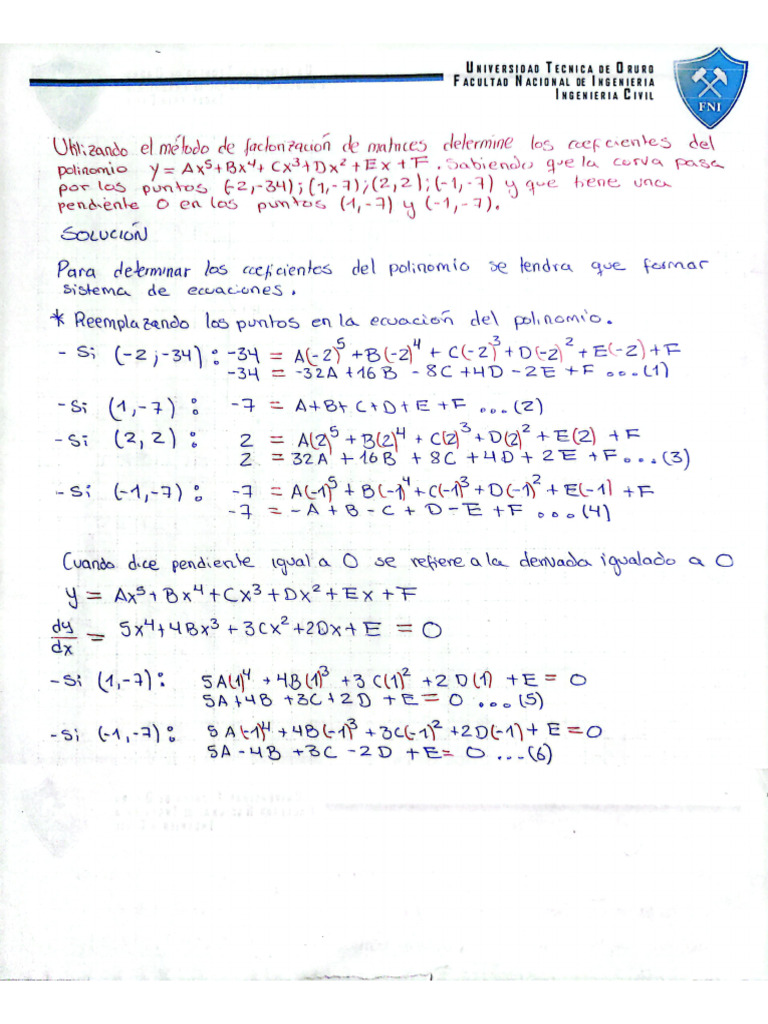 UNIVERSIDAD TECNICA DE ORURO
FACULTAD NACIONAL DE INGENIERIA
INGENIERIA CIVIL
FNI
Utilizando el método de factorización de matrices determine los coeficientes del
polinomio y = Ax⁵+Bx⁴+Cx³+Dx²+Ex+F. Sabiendo que la curva pasa
por los puntos (-2,-34); (1,-7); (2,2); (-1,-7) y que tiene una
pendiente 0 en los puntos (1,-7) y (-1,-7).
SOLUCIÓN
Para determinar los coeficientes del polinomio se tendra que formar
sistema de ecuaciones.
* Reemplazando los puntos en la ecuación del polinomio.
- Si (-2;-34): -34 = A(-2)⁵+B(-2)⁴+C(-2)³+D(-2)²+E(-2)+F
-34 = -32A+16B-8C+4D-2E+F ...(1)
- Si (1,-7): -7 = A+B+C+D+E+F ...(2)
- Si (2,2): 2 = A(2)⁵+B(2)⁴+C(2)³+D(2)²+E(2)+F
2 = 32A+16B+8C+4D+2E+F...(3)
- Si (-1,-7): -7 = A(-1)⁵+B(-1)⁴+C(-1)³+D(-1)²+E(-1)+F
-7 = -A+B-C+D-E+F ...(4)
Cuando dice pendiente igual a 0 se refiere a la derivada igualado a 0
y = Ax⁵+Bx⁴+Cx³+Dx²+Ex+F
dy/dx = 5x⁴+4Bx³+3Cx²+2Dx+E = 0
- Si (1,-7): 5A(1)⁴+4B(1)³+3C(1)²+2D(1)+E = 0
5A+4B+3C+2D+E = 0 ...(5)
- Si (-1,-7): 5A(-1)⁴+4B(-1)³+3C(-1)²+2D(-1)+E = 0
5A-4B+3C-2D+E = 0 ...(6)